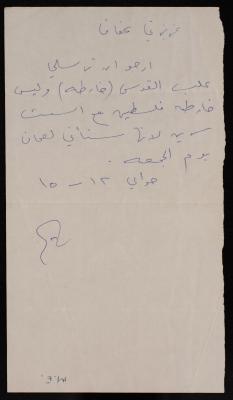 عزيزتي عفاف
ارجو ان ترسلي
علب القدس (خارطه) وليس
خارطه فلسطين مع الست
سرين لانها ستأتي لعمان
يوم الجمعه.
حوالي ١٢ - ١٥
M.E.